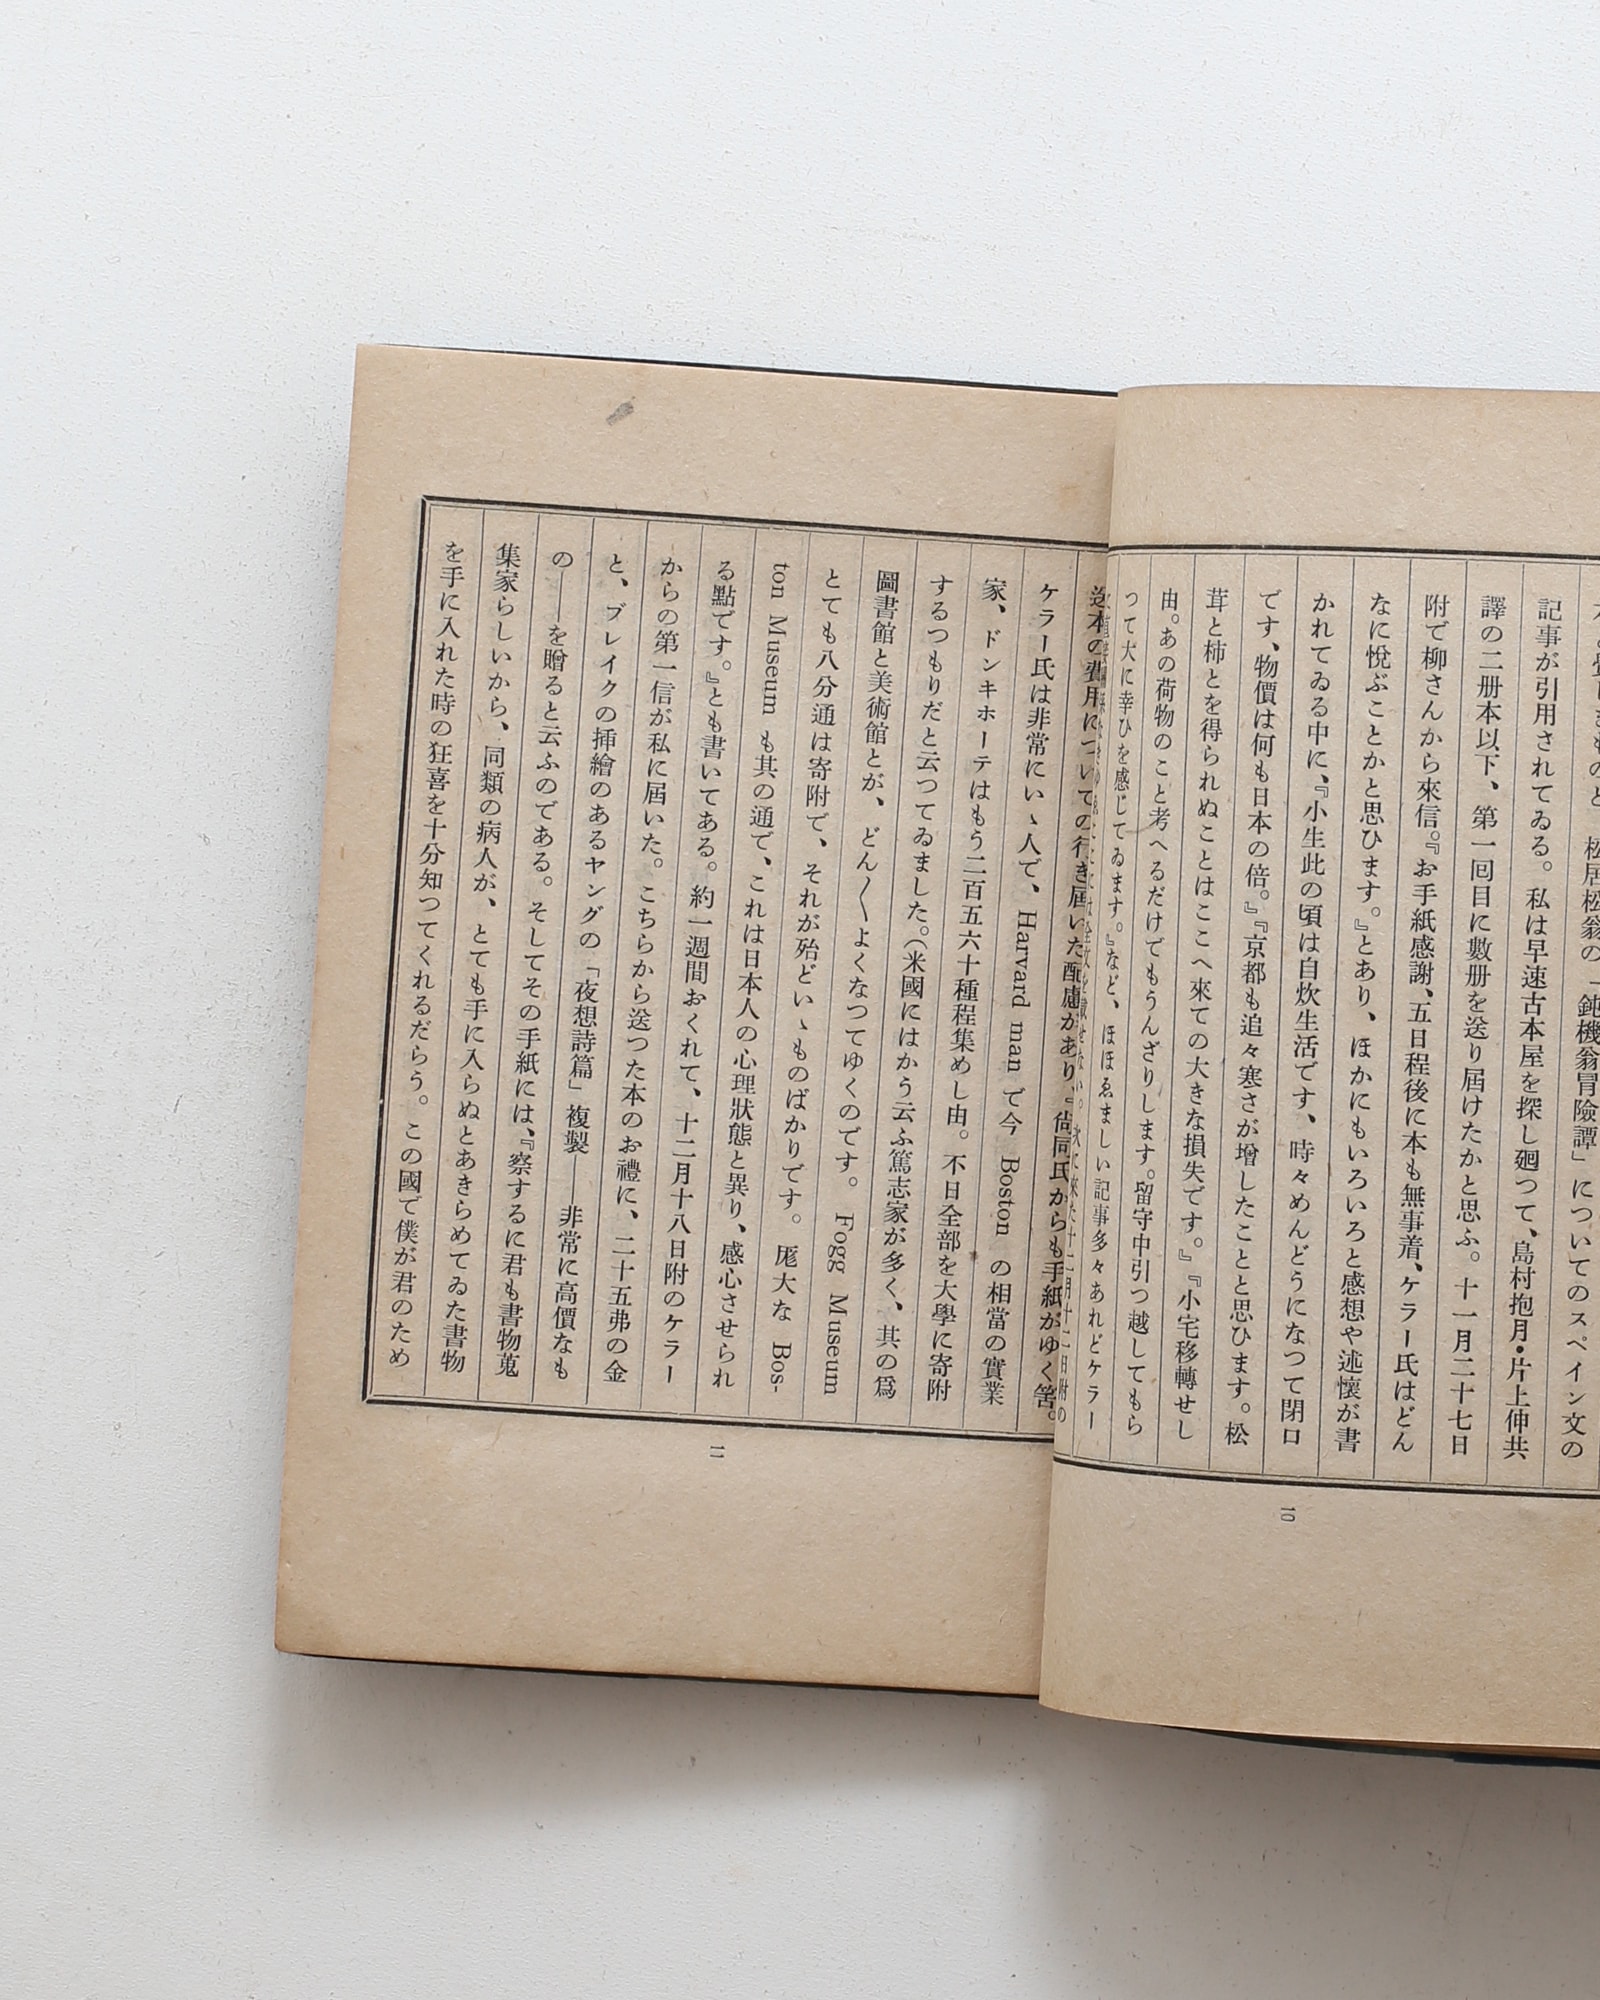 松居松翁の「鈍機翁冒險譚」についてのスペイン文の
記事が引用されてゐる。私は早速古本屋を探し廻つて、島村抱月・片上伸共
譯の二册本以下、第一回目に數册を送り屆けたかと思ふ。十一月二十七日
附で柳さんから來信。『お手紙感謝、五日程後に本も無事着、ケラー氏はどん
なに悅ぶことかと思ひます。』とあり、ほかにもいろいろと感想や述懷が書
かれてゐる中に、『小生此の頃は自炊生活です、時々めんどうになつて閉口
です、物價は何も日本の倍。』『京都も追々寒さが增したことと思ひます。松
茸と柿とを得られぬことはここへ來ての大きな損失です。』『小宅移轉せし
由。あの荷物のこと考へるだけでもうんざりします。留守中引つ越してもら
つて大に幸ひを感じてゐます。』など、ほほゑましい記事多々あれどケラー
10
送本の費用についての行き屆いた配慮があり、『尙同氏からも手紙がゆく筈。
ケラー氏は非常にいゝ人で、Harvard man で今 Boston の相當の實業
家、ドンキホーテはもう二百五六十種程集めし由。不日全部を大學に寄附
するつもりだと云つてゐました。（米國にはかう云ふ篤志家が多く、其の爲
圖書館と美術館とが、どん〱よくなつてゆくのです。Fogg Museum
とても八分通は寄附で、それが殆どいゝものばかりです。厖大な Bos-
ton Museum も其の通で、これは日本人の心理狀態と異り、感心させられ
る點です。』とも書いてある。約一週間おくれて、十二月十八日附のケラー
からの第一信が私に屆いた。こちらから送つた本のお禮に、二十五弗の金
と、ブレイクの揷繪のあるヤングの「夜想詩篇」複製――非常に高價なも
の――を贈ると云ふのである。そしてその手紙には、『察するに君も書物蒐
集家らしいから、同類の病人が、とても手に入らぬとあきらめてゐた書物
を手に入れた時の狂喜を十分知つてくれるだらう。この國で僕が君のため
11